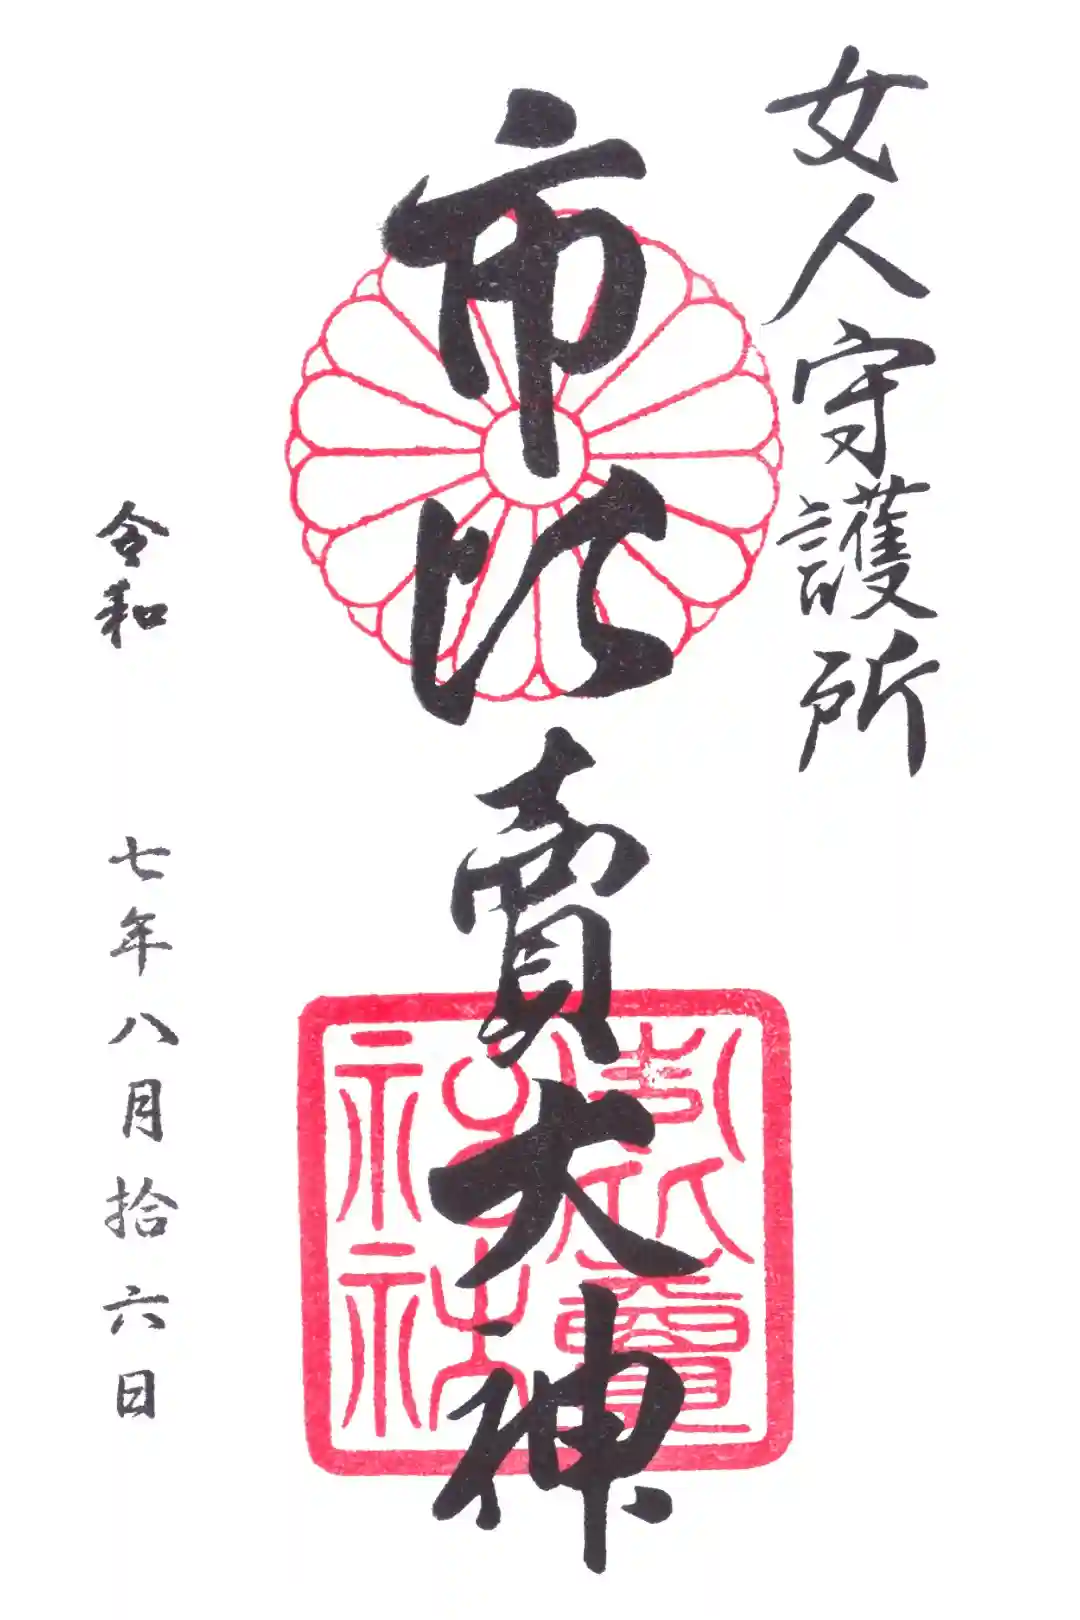 女人守護所
市比賣大神
令和 七年八月拾六日
市比賣神社